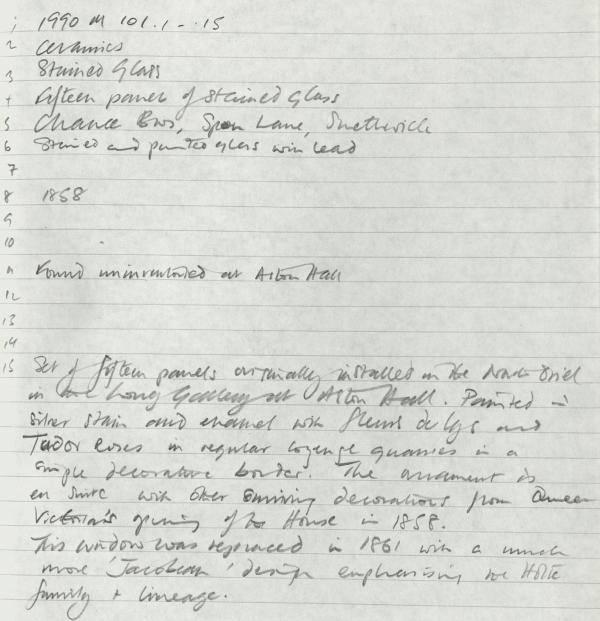 1 1990 M 101.1-.15
2 Ceramics
3 Stained Glass
4 Fifteen panels of stained glass
5 Chance Bros, Spon Lane, Smethwick
6 Stained and painted glass with lead
7
8 1858
9
10
11 Found uninventoried at Aston Hall
12
13
14
15 Set of fifteen panels originally installed in the North Oriel
in the Long Gallery at Aston Hall. Painted in
silver stain and enamel with fleurs de lys and
Tudor Roses in regular lozenge quarries in a
simple decorative border. The ornament is
en suite with other surviving decorations from Queen
Victoria's opening of the House in 1858.
This window was replaced in 1861 with a much
more 'Jacobean' design emphasising the Holte
family + lineage.